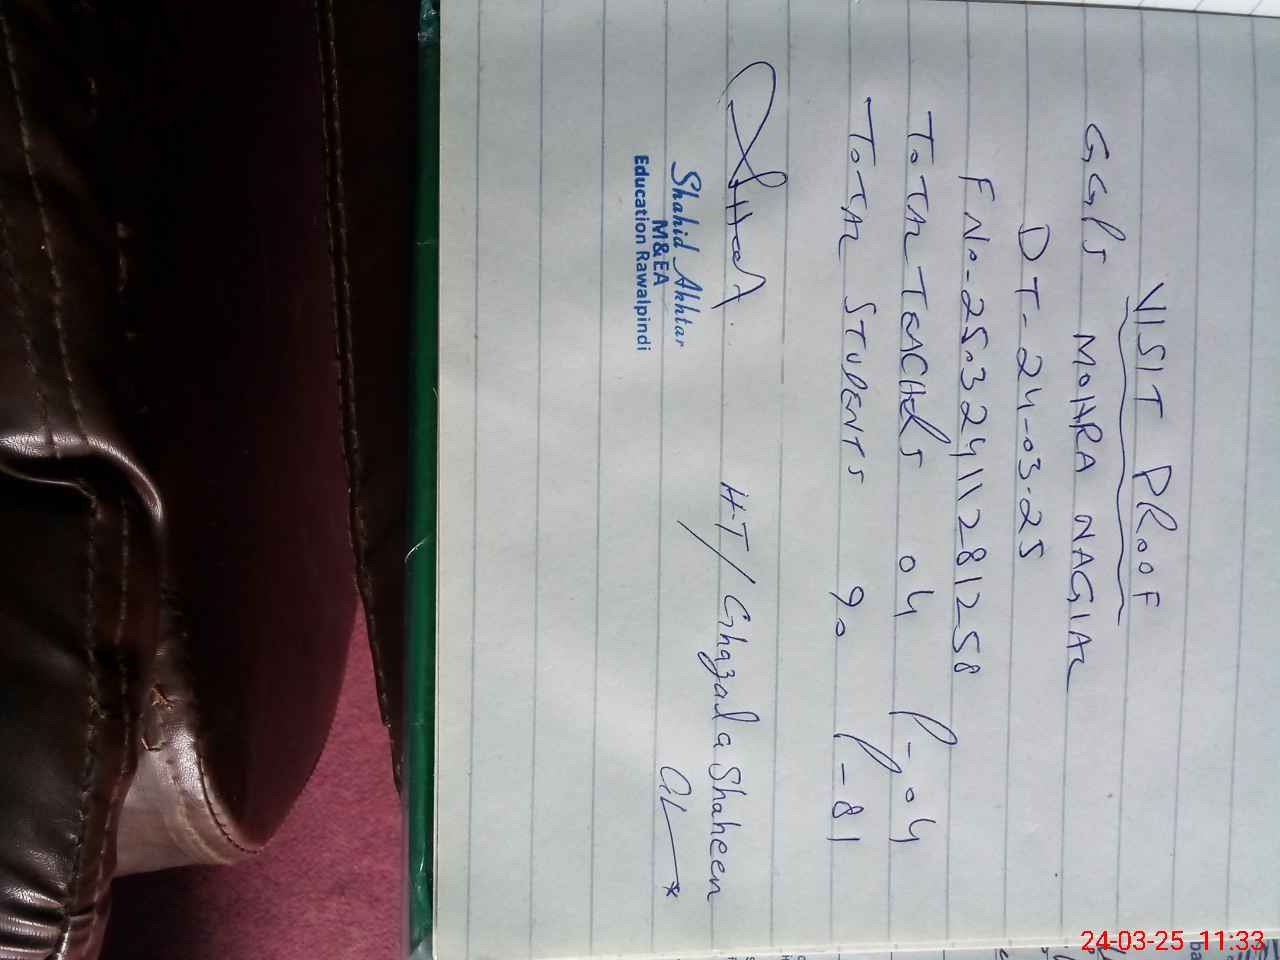 VISIT PROOF
GGPS MOHRA NAGIAL
DT-24-03-25
F No-25032411281258
TOTAL TEACHERS 04 P-04
TOTAL STUDENTS 90 P-81
HT/Ghazala Shaheen
Shahid Akhtar
M&EA
Education Rawalpindi
24-03-25 11:33